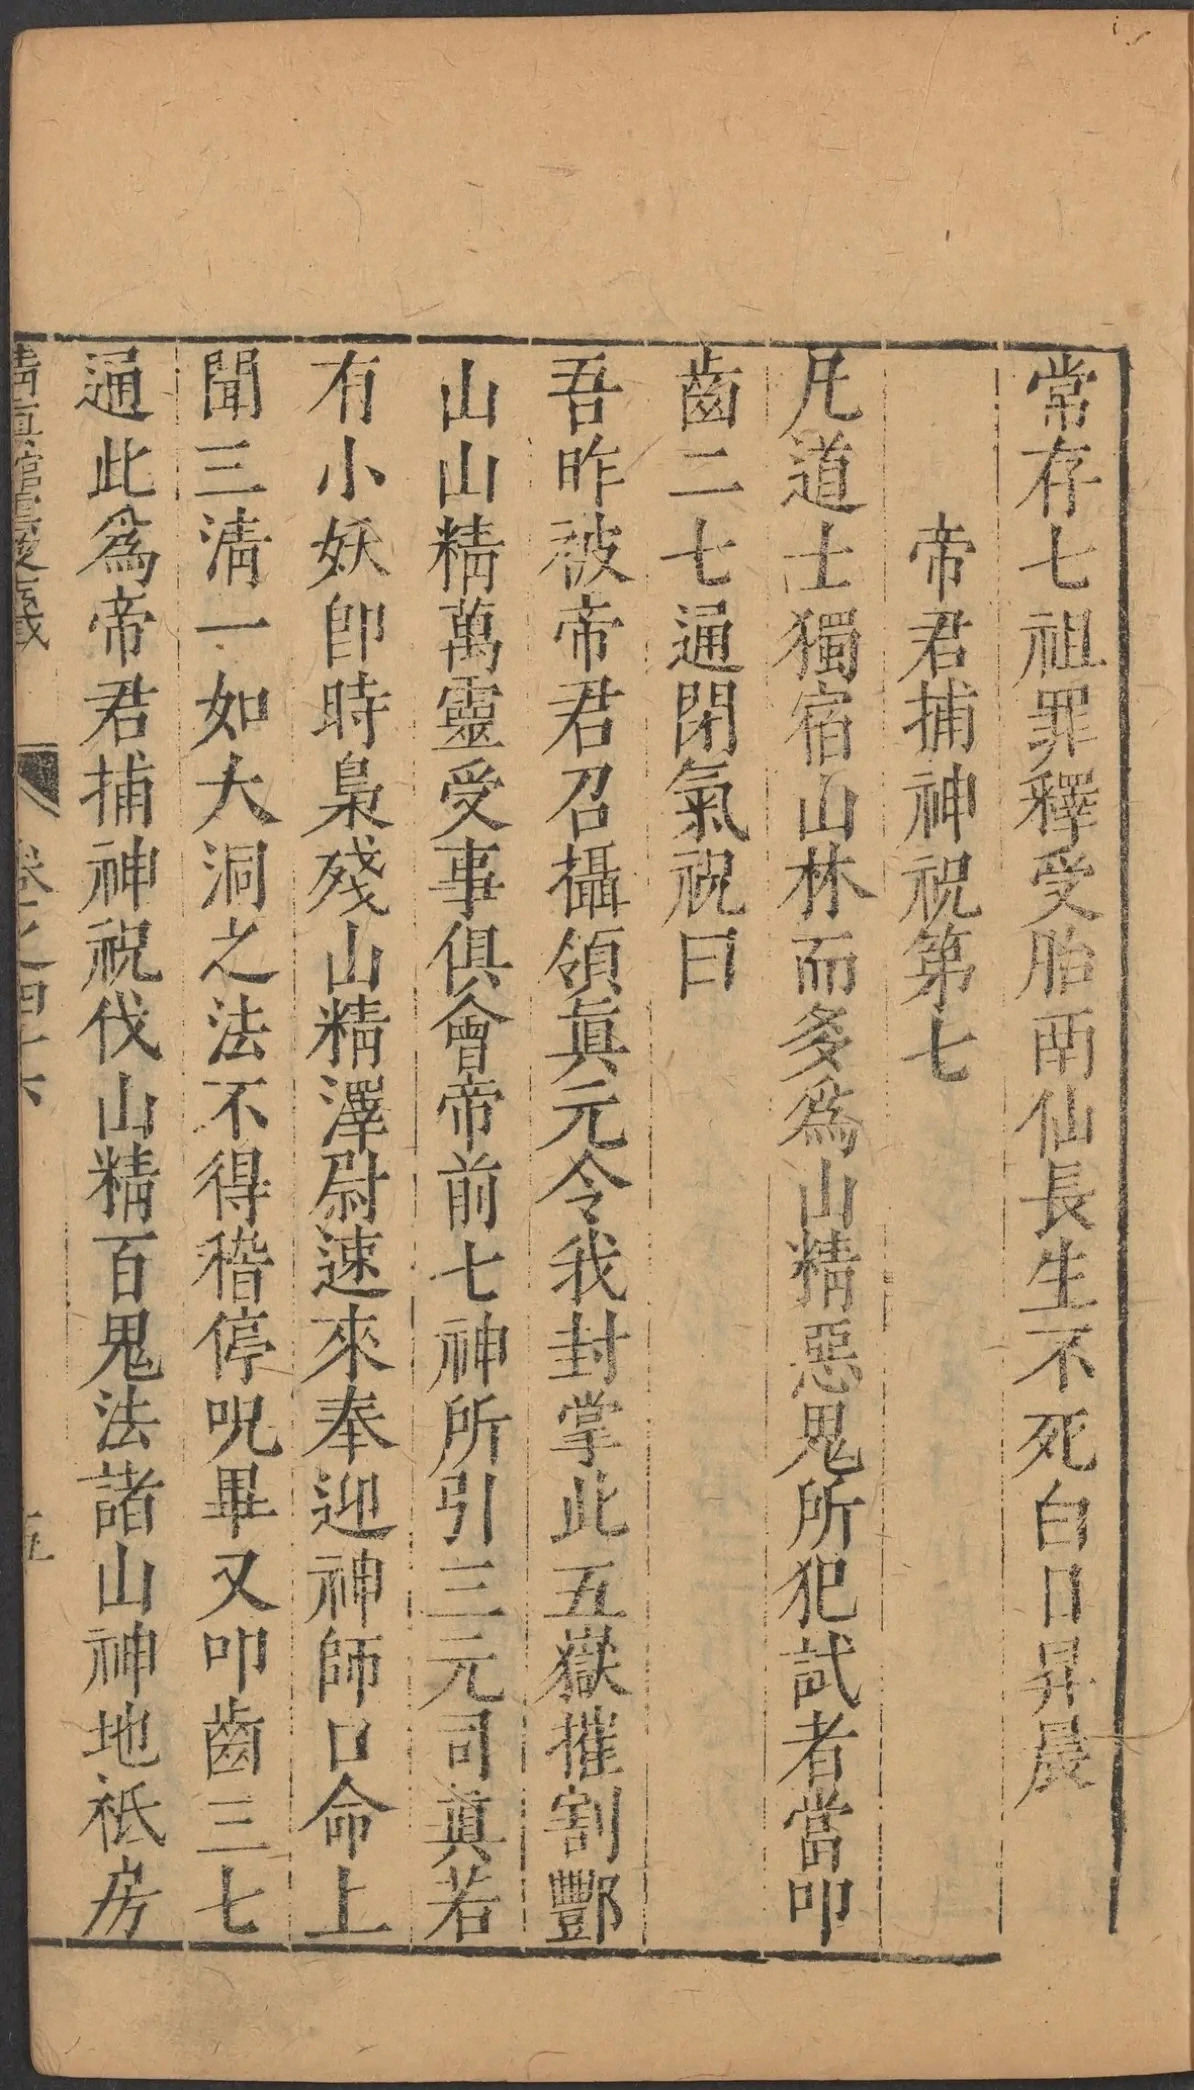 常存七祖罪釋受胎南仙長生不死白日昇晨
帝君捕神祝第七
凡道士獨宿山林而多爲山精惡鬼所犯試者當叩
齒二七通閉氣祝曰
吾昨被帝君召攝領眞元令我封掌此五嶽摧割酆
山山精萬靈受事俱會帝前七神所引三元司眞若
有小妖卽時梟殘山精澤尉速來奉迎神師口命上
聞三淸一如大洞之法不得稽停呪畢又叩齒三七
通此爲帝君捕神祝伐山精百鬼法諸山神地祇房
淸眞館雲笈七籤 卷之四十六 五